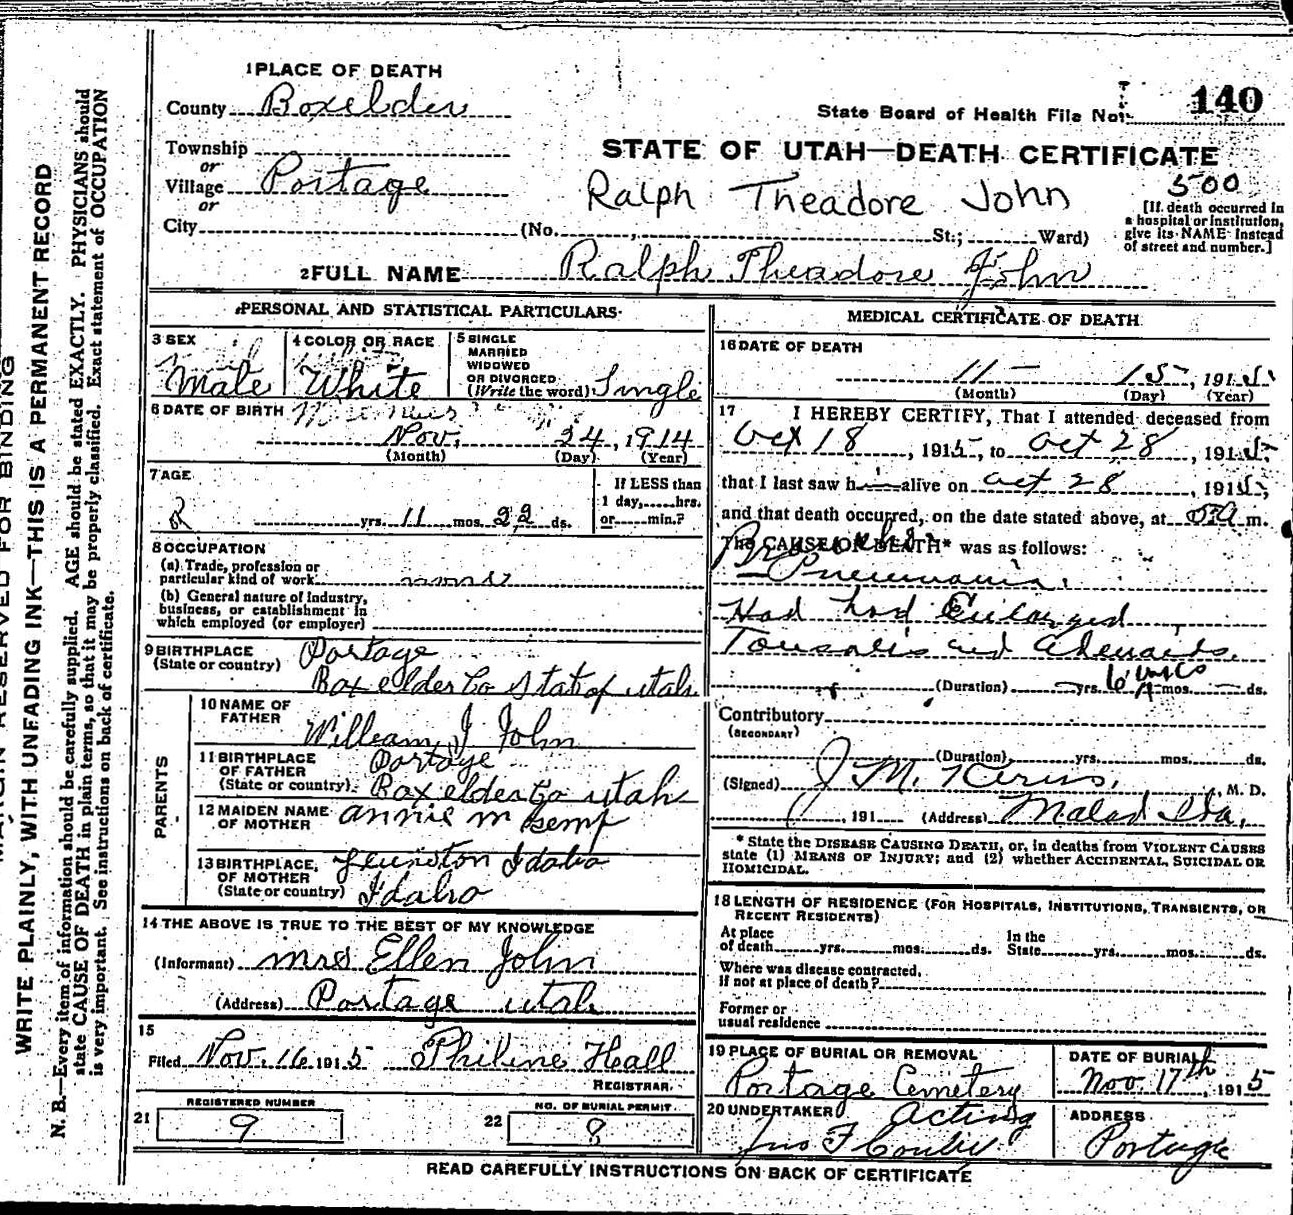 MARGIN RESERVED FOR BINDING
WRITE PLAINLY, WITH UNFADING INK—THIS IS A PERMANENT RECORD
N. B.—Every item of information should be carefully supplied. AGE should be stated EXACTLY. PHYSICIANS should
state CAUSE OF DEATH in plain terms, so that it may be properly classified. Exact statement of OCCUPATION
is very important. See instructions on back of certificate.
1 PLACE OF DEATH
County Boxelder
State Board of Health File No. 140
Township
or
Village Portage
or
STATE OF UTAH—DEATH CERTIFICATE
500
Ralph Theadore John
[If death occurred in
a hospital or institution,
give its NAME instead
of street and number.]
City (No. , St.; Ward)
2 FULL NAME Ralph Theadore John
PERSONAL AND STATISTICAL PARTICULARS
3 SEX
Male
4 COLOR OR RACE
White
5 SINGLE
MARRIED
WIDOWED
OR DIVORCED
(Write the word) Single
6 DATE OF BIRTH
Nov. 24, 1914
(Month) (Day) (Year)
7 AGE
yrs. 11 mos. 22 ds.
If LESS than
1 day, hrs.
or min.?
8 OCCUPATION
(a) Trade, profession or
particular kind of work none
(b) General nature of Industry,
business, or establishment in
which employed (or employer)
9 BIRTHPLACE
(State or country)
Portage
Box elder Co Stat of utah
PARENTS
10 NAME OF
FATHER
William J John
11 BIRTHPLACE
OF FATHER
(State or country)
Portage
Box elder Co utah
12 MAIDEN NAME
OF MOTHER
annie m Kemp
13 BIRTHPLACE
OF MOTHER
(State or country)
Lewiston Idaho
Idaho
14 THE ABOVE IS TRUE TO THE BEST OF MY KNOWLEDGE
(Informant) mrs Ellen John
(Address) Portage utah
15
Filed Nov. 16 1915 Heall
REGISTRAR
REGISTERED NUMBER
21 9
NO. OF BURIAL PERMIT
22 8
MEDICAL CERTIFICATE OF DEATH
16 DATE OF DEATH
11 — 15, 1915
(Month) (Day) (Year)
17 I HEREBY CERTIFY, That I attended deceased from
Oct 18, 1915, to Oct 28, 1915,
that I last saw h alive on Oct 28, 1915,
and that death occurred, on the date stated above, at m.
The CAUSE OF DEATH* was as follows:
Broncho
—Pneumonia.
Had had Enlarged
Tonsils and Adenoids.
(Duration) yrs. 6 mos. ds.
Contributory
(SECONDARY)
(Duration) yrs. mos. ds.
(Signed) J. M. , M. D.
, 191 (Address) Malad Ida,
* State the DISEASE CAUSING DEATH, or, in deaths from VIOLENT CAUSES
state (1) MEANS OF INJURY; and (2) whether ACCIDENTAL, SUICIDAL OR
HOMICIDAL.
18 LENGTH OF RESIDENCE (FOR HOSPITALS, INSTITUTIONS, TRANSIENTS, OR
RECENT RESIDENTS)
At place
of death yrs. mos. ds.
In the
State yrs. mos. ds.
Where was disease contracted,
If not at place of death?
Former or
usual residence
19 PLACE OF BURIAL OR REMOVAL
Portage Cemetery
DATE OF BURIAL
Nov. 17th, 1915
20 UNDERTAKER acting
Jno F
ADDRESS
Portage
READ CAREFULLY INSTRUCTIONS ON BACK OF CERTIFICATE